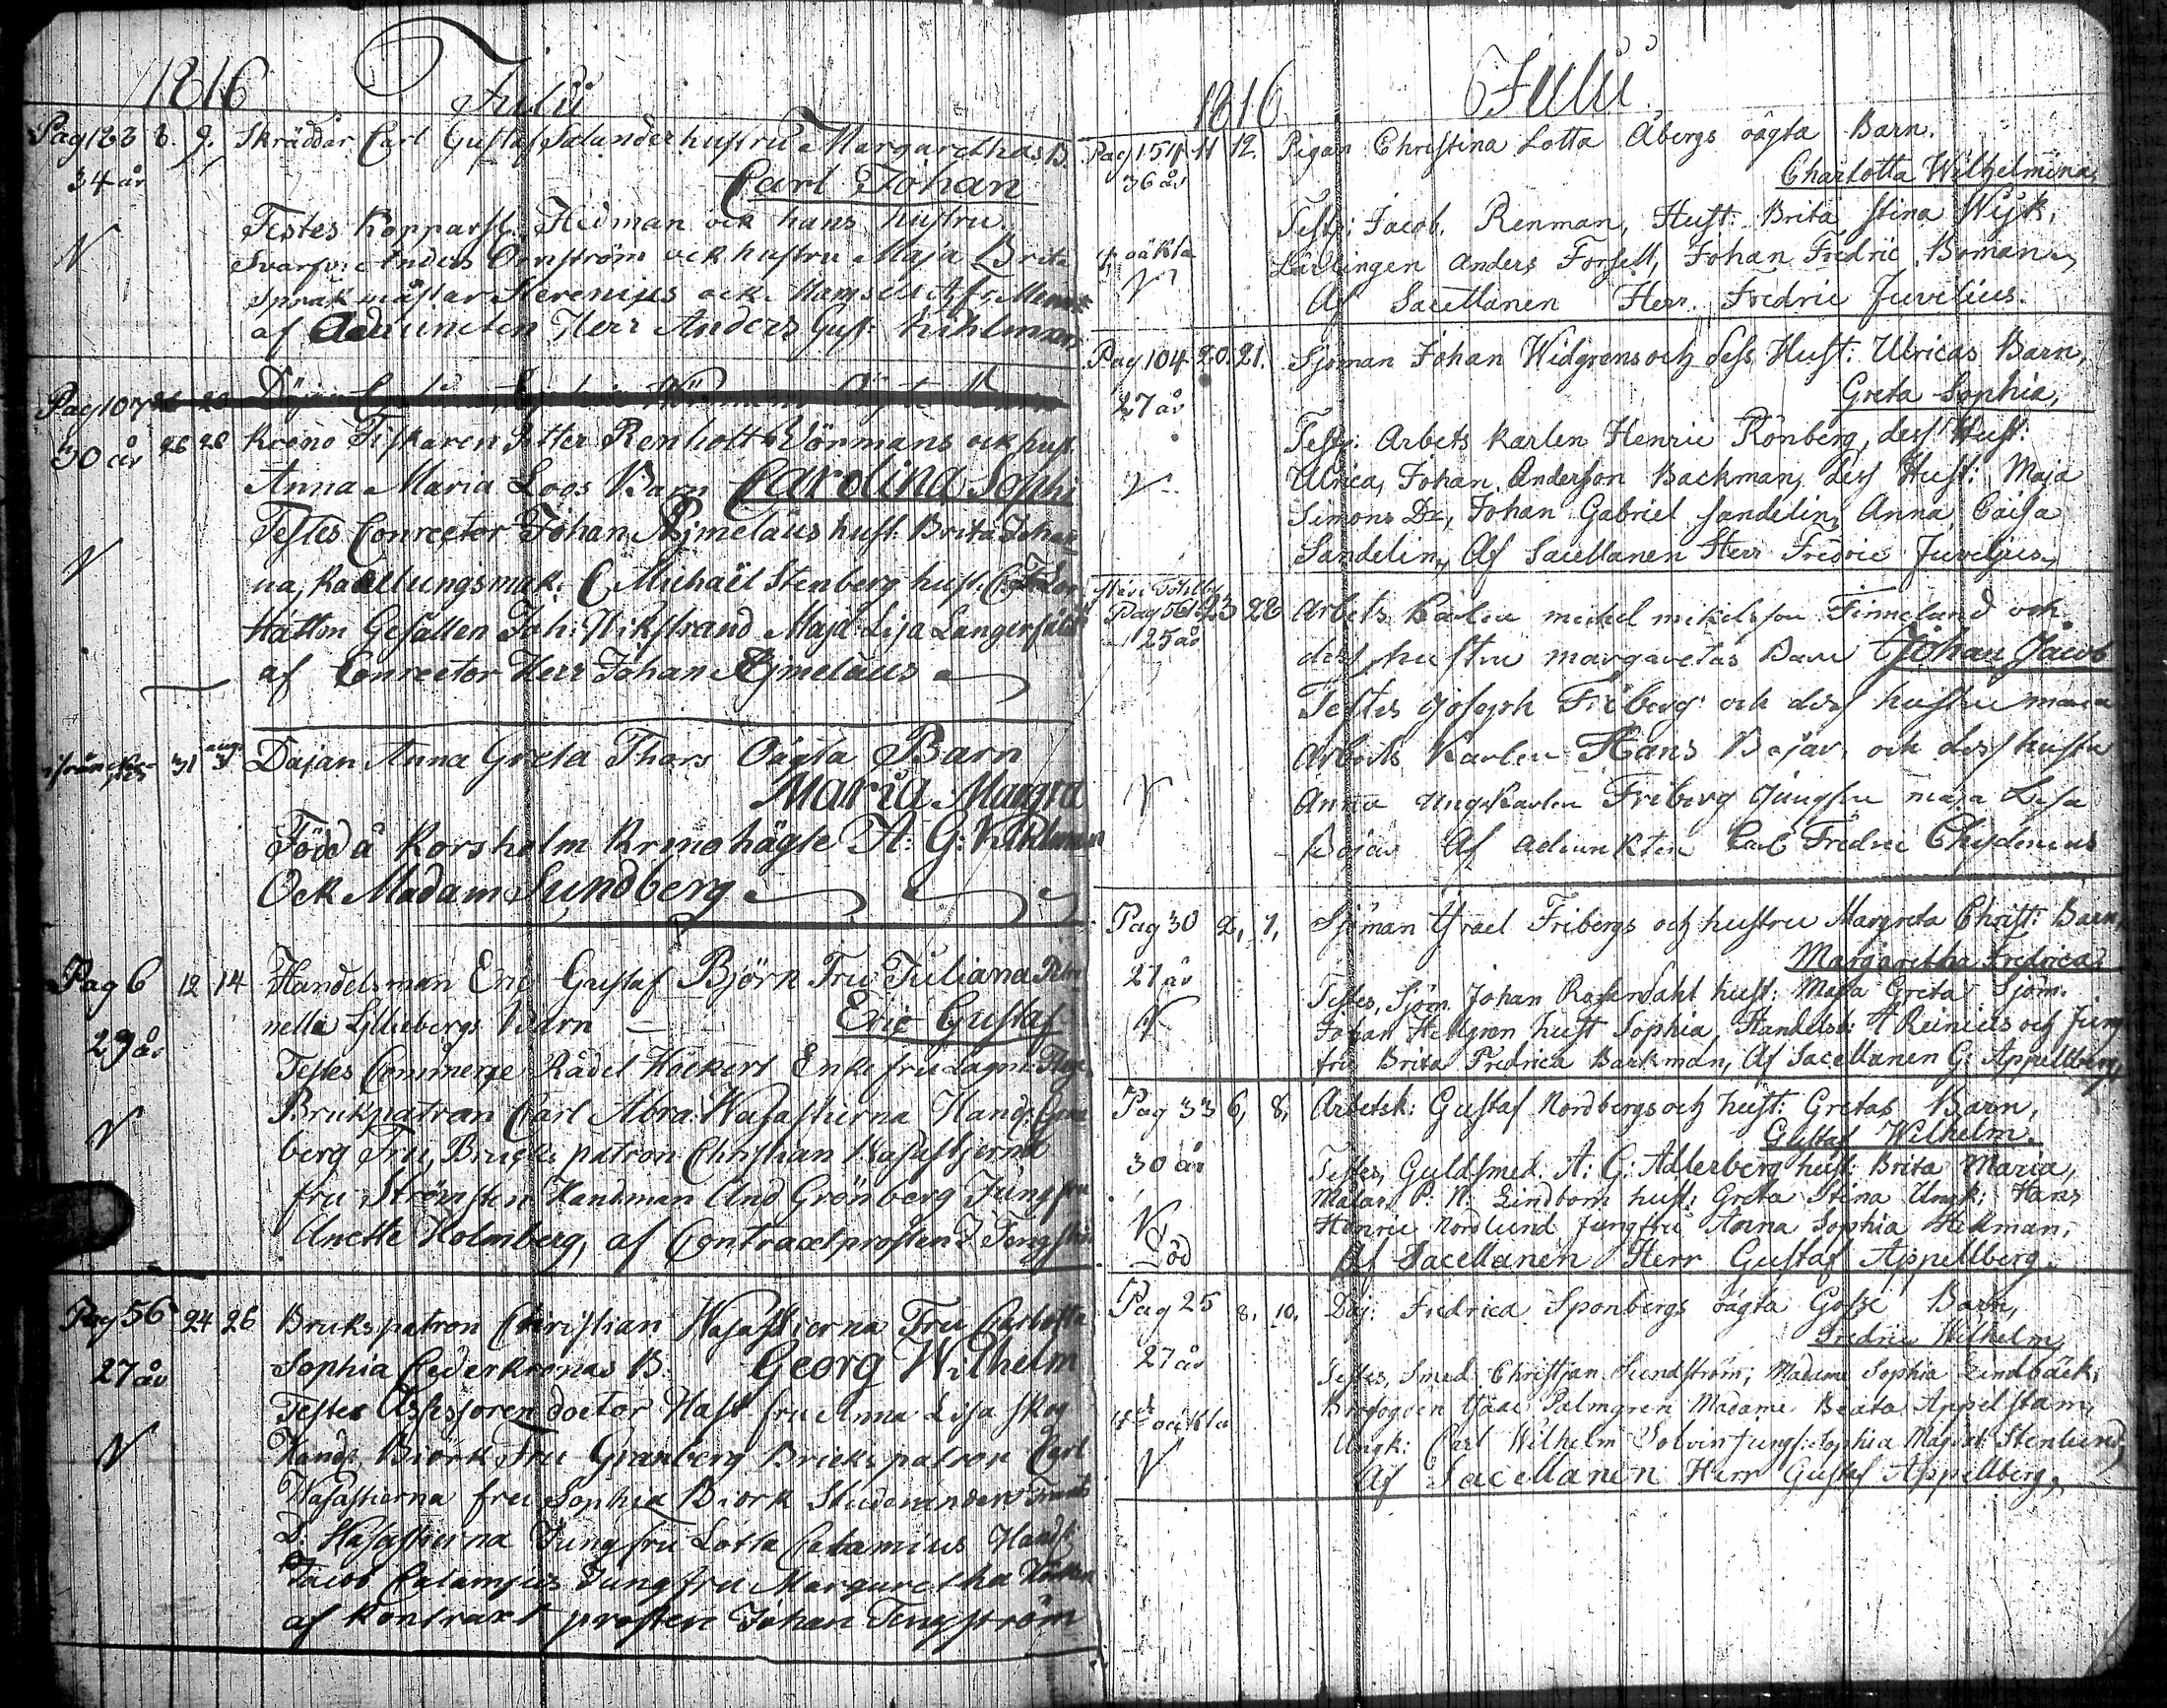 1816 Julii
Pag 123 8. 9. Skräddar Carl Gustaf Salander hustru Margarethas B.
34 år Carl Johan
Testes Kopparsl. Hedman ock hans hustru.
Svarfv: Anders Örnström ock hustru Maja Brita
Språkmästar ock
af Adjuncten Herr Anders Gust: Kihlman
Pag 107
30 år 26 28 Krono Fiskaren Petter Renholt Wörmans ock hust
Anna Maria Loos Barn Carolina Sophi
Testes Conrector Johan Aejmelæus hust. Brita Johan
na, Kakelungsmak: C Michaël Stenberg hust.
Gesällen Joh: Wikstrand Maja Lisa
af Conrector Herr Johan Aejmelæus
31 aug. 3 Däjan Anna Greta Thors Oägta Barn
Maria Margra
Född å Korsholm Kronohägte A: G: Kihlman
Ock Madam Sundberg
Pag 6 12 14 Handelsman Eric Gustaf Björk Fru Juliana Petro
nella Lillebergs Barn Eric Gustaf
29 år
Testes Commerse Rådet Höckert Enkefru
Brukspatron Carl Abra: Wasastierna Hand: Gran
berg Fru, Bruks patron Christian Wasastjerna
fru Strömsten Handsman And Grönberg Jungfru
Anette Holmberg, af Contractprosten J Tengströ
Pag 56 24 26 Brukspatron Christian Wasastierna Fru Carlotta
27 år Sophia Cederkronas B. Georg Wilhelm
Testes Assessoren doctor Hast fru Anna Lisa Skog
Hands Biörk Fru Granberg Bruks patron Carl
Wasastierna fru Sophia Biork Studerander Frants
D: Wasastierna Jungfru Lotta Calamius Handl:
Jacob Calamnius Jungfru Margaretha
af Kontraxt prosten Johan Tengström
1816 Julii
Pag 154 11 12. Pigan Christina Lotta Åbergs oägta Barn.
36 år Charlotta Wilhelmina,
Test: Jacob. Renman, Hust: Brita Stina Wijk,
oäkta Lärlingen Anders Forsell, Johan Fredric Boman,
Af Sacellanen Herr Fredric Juvelius.
Pag 104 20. 21. Sjöman Johan Widgrens och dess Hust: Ulricas Barn,
27 år Greta Sophia,
Test: Arbets Karlen Henric Rönberg, dess Hust:
Ulrica, Johan Anderson Backman, dess Hust: Maja
Simons Dr, Johan Gabriel Sandelin, Anna Caisa
Sandelin, Af Sacellanen Herr Fredric Juvelius,
Pag 561 23 28 Arbets Karlen mickel mickelsson Finnelund och
25 år dess hustru margaretas Barn Johan Jacob
Testes Joseph Friberg och dess hustru maria
Arbets Karlen Hans Bojar, och dess hustru
Anna ungkarlen Friberg Jungfru maja Lisa
Bojar Af adiunkten Carl Fredric Chydenius
Pag 30 2, 7, Sjöman Israel Fribergs och hustru Margreta Christ: Barn,
27 år Margaretha Fredrica
Testes, Sjöm. Johan Rosendahl hust: Maja Greta Sjöm.
Johan Hedgren hust Sophia, Handelsb: A Reinius och Jung
fru Brita Fredrica Backman, Af Sacellanen G: Appellberg,
Pag 33 6, 8, Arbetsk: Gustaf Nordbergs och hust: Gretas Barn,
Gustaf Wilhelm.
30 år Testes, Guldsmed A: G: Adlerberg hust: Brita Maria,
Målar P: N: Lindbom hust: Greta Stina Ungk: Hans
Henric Nordlund Jungfru Anna Sophia Hekman,
Död Af Sacellanen Herr Gustaf Appellberg.
Pag 25 8. 10. Däj: Fredrica Sponbergs oägta Gosse Barn,
Fredric Wilhelm,
27 år Testes, Smed Christjan Sundström; Madame Sophia Lindbäck,
oäkta Isaac Palmgren Madame Beata Appelstam,
Ungk: Carl Wilhelm Solvin Jungf: Sophia Magret Stenlund,
Af Sacellanen Herr Gustaf Appellberg,